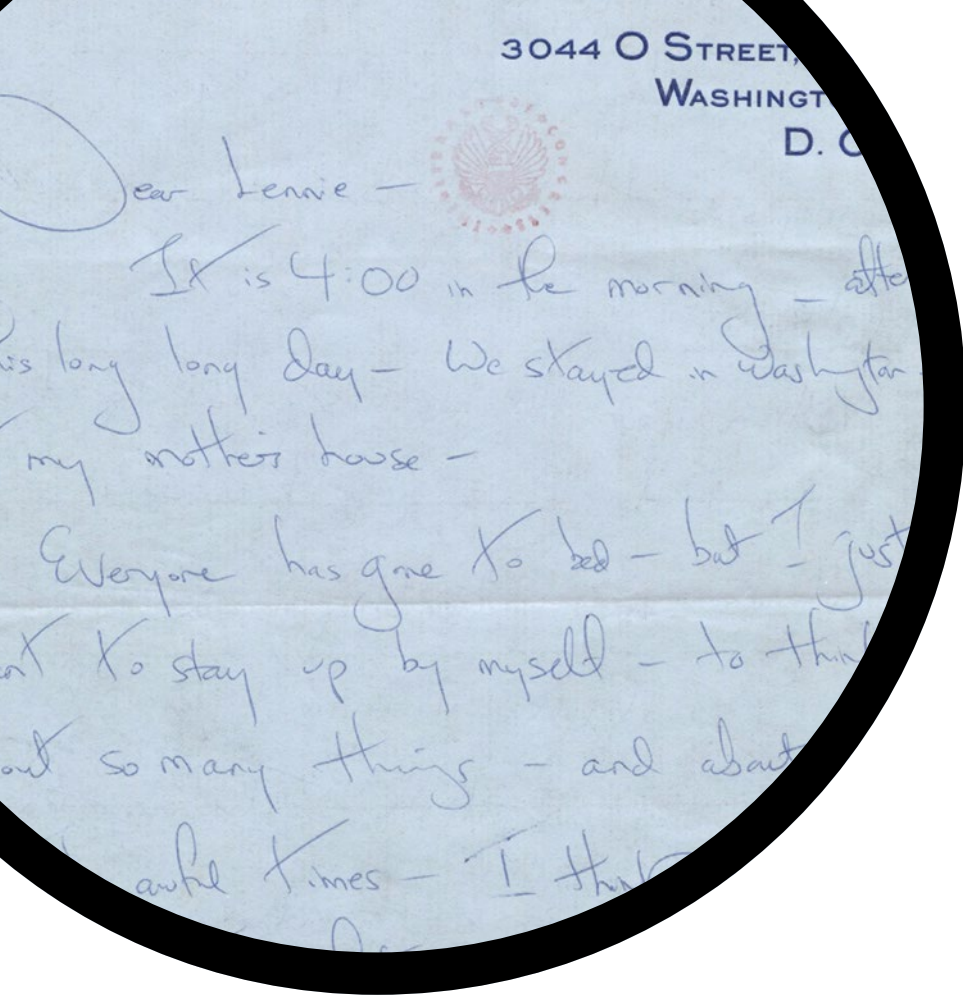 3044 O STREET,
WASHINGT
D. C
Dear Lennie –
It is 4:00 in the morning – afte
is long long day – We stayed in Washington
my mother's house –
Everyone has gone to bed – but I just
nt to stay up by myself – to think
out so many things – and about
awful times – I think